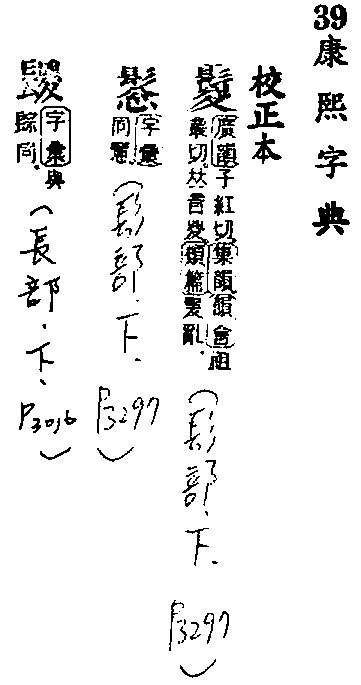 39 康熙字典
校正本
鬉 廣韻子紅切集韻韻會祖
叢切𠀤音㚇類篇髮亂.
(髟部.下. P3297)
字彙
同鬉.
(髟部.下. P3297)
字彙與
同.
(長部.下. P3016)